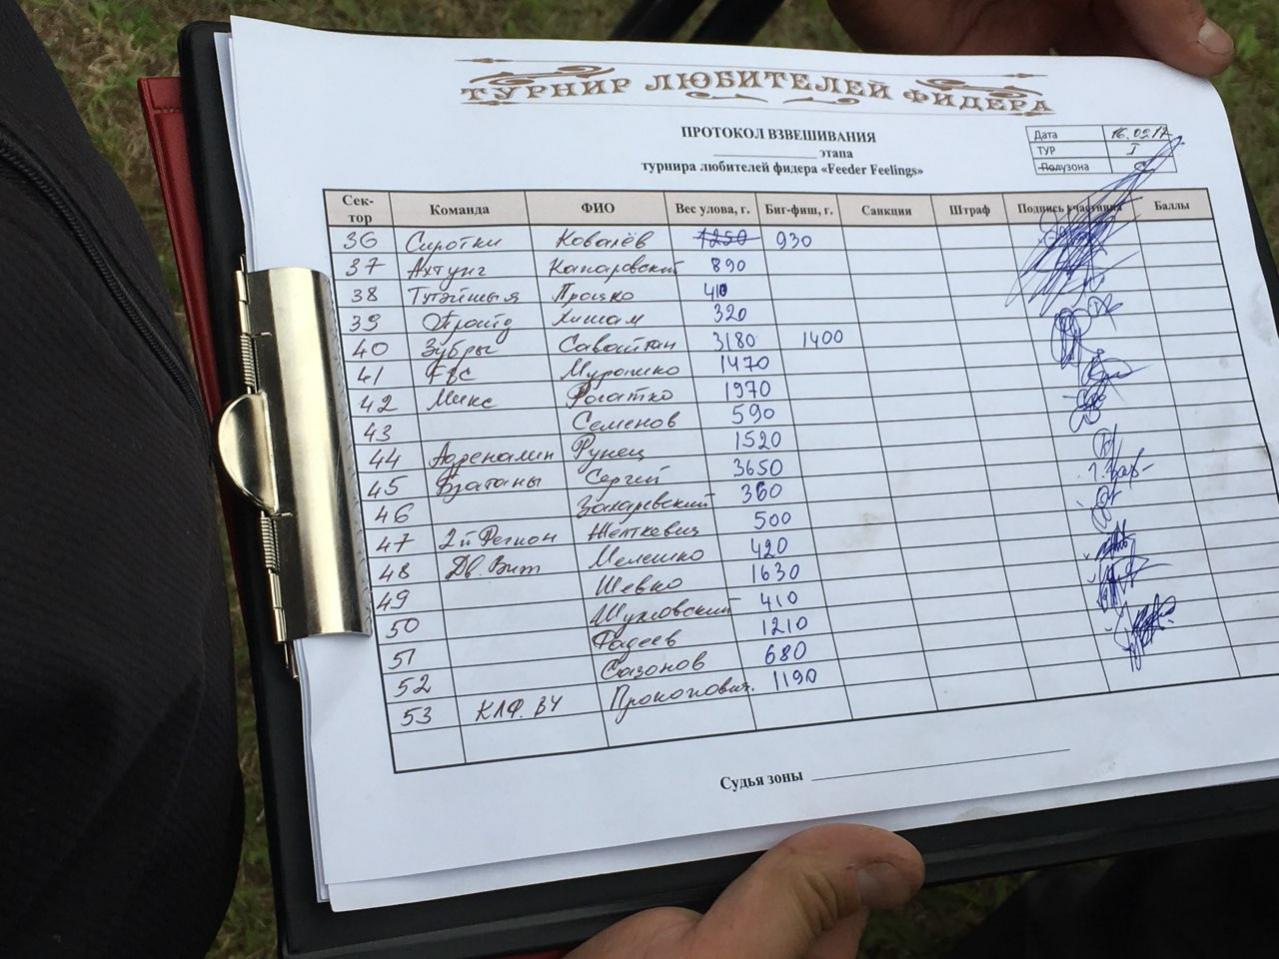 ТУРНИР ЛЮБИТЕЛЕЙ ФИДЕРА
ПРОТОКОЛ ВЗВЕШИВАНИЯ
____________ этапа
турнира любителей фидера «Feeder Feelings»
Дата 16.09.17
ТУР I
Полузона
Сек-тор Команда ФИО Вес улова, г. Биг-фиш, г. Санкции Штраф Подпись участника Баллы
36 Сиротки Ковалёв 1250 930
37 Ахтунг Капаровский 890
38 Тутэйшыя Процко 410
39 Хишам 320
40 Зубры Савостян 3180 1400
41 FBC Мурашко 1470
42 Микс Рогатко 1970
43 Семенов 590
44 Адреналин Рунец 1520
45 Сергей 3650
46 Захаревский 360
47 2й Регион Желткевич 500
48 Дв. Вит Мелешко 420
49 Шевко 1630
50 410
51 Фадеев 1210
52 Сазонов 680
53 КЛФ. ВЧ Прокопович. 1190
Судья зоны ____________